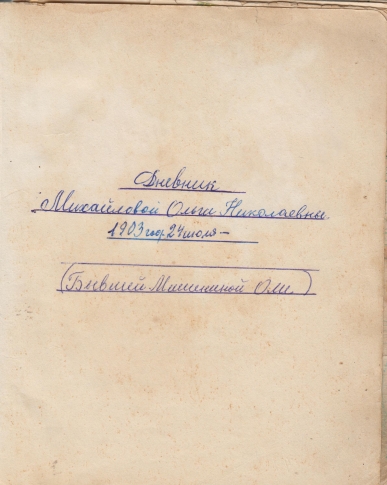 Дневник
Михайловой Ольги Николаевны.
1903 год. 24 июля —
(Бывшей Оли.)